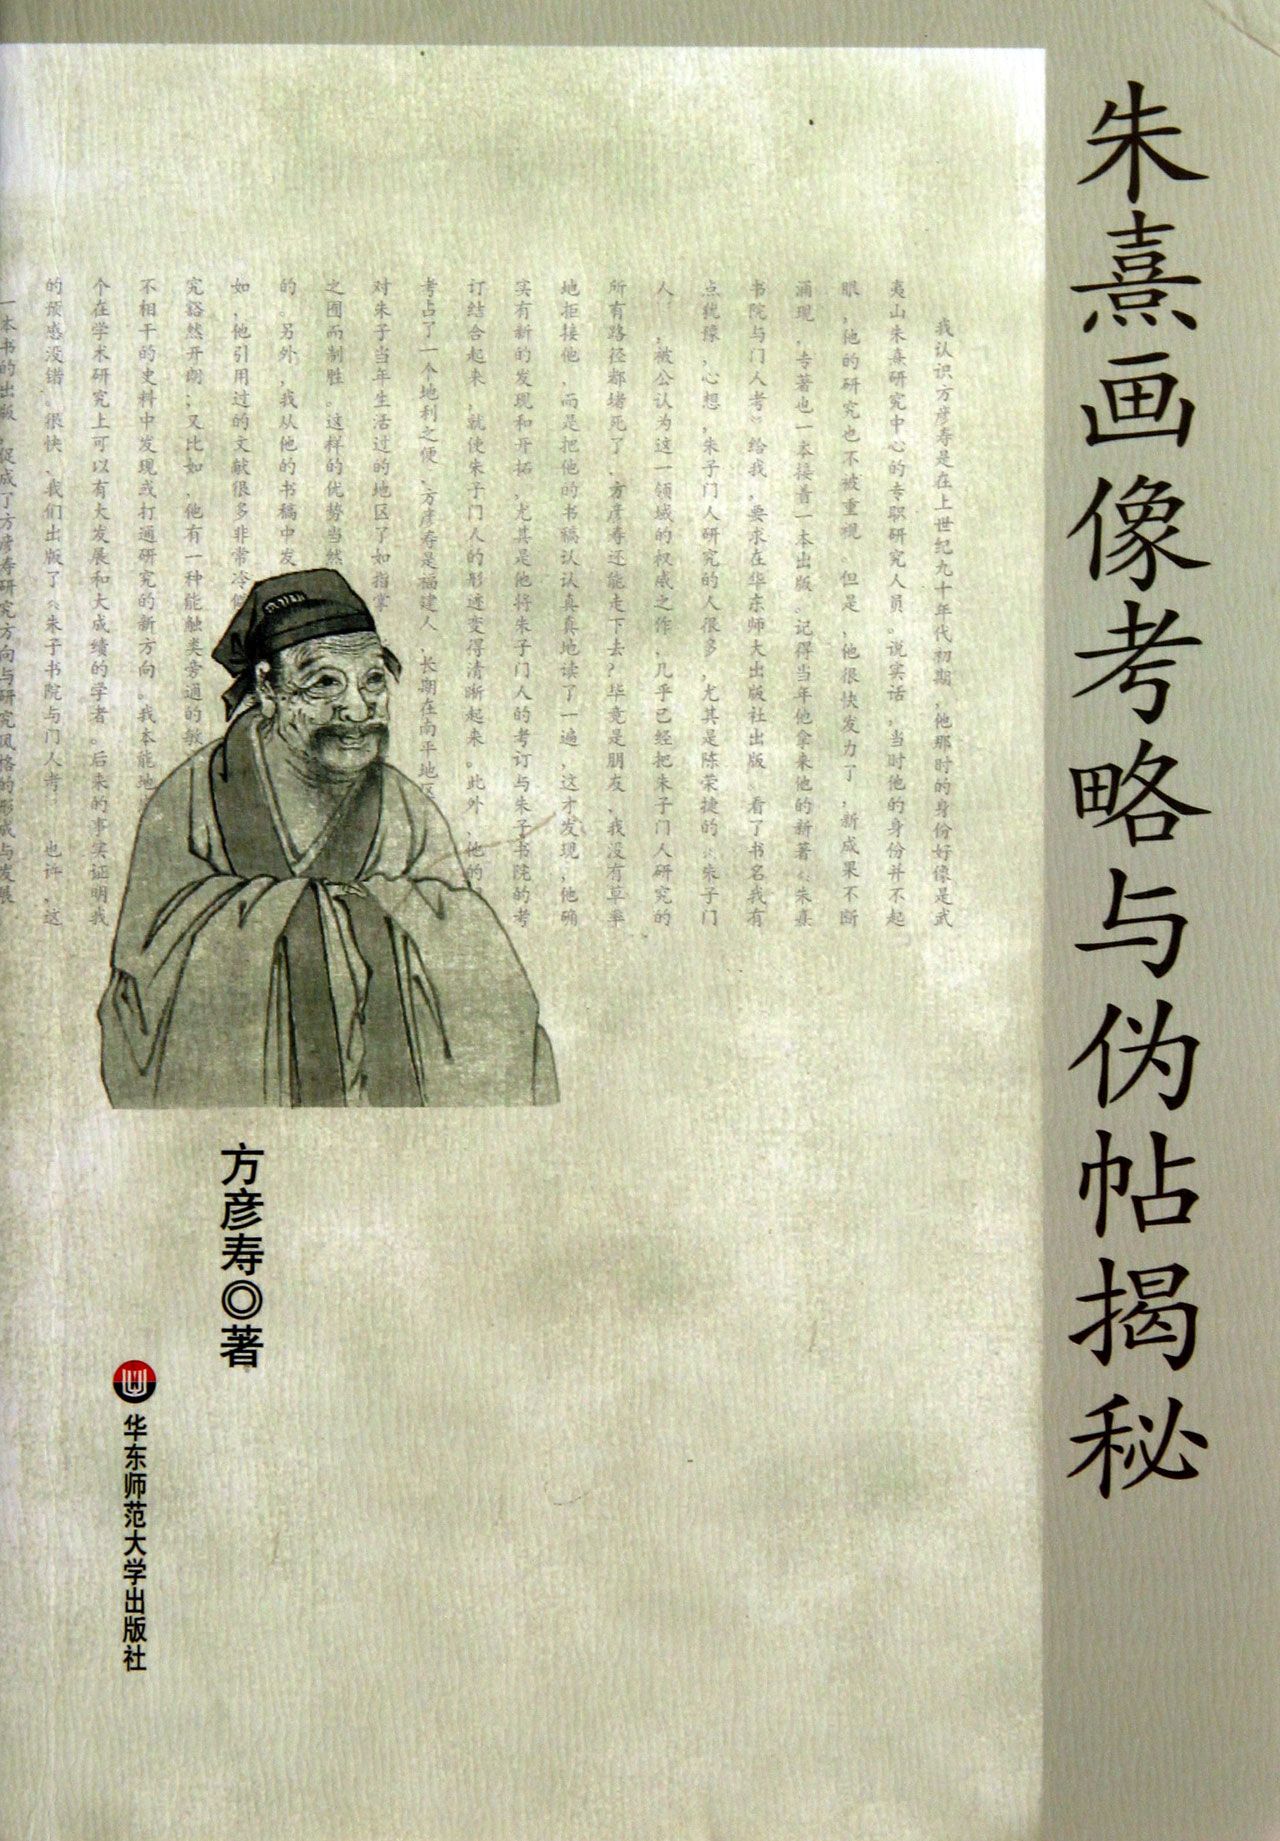 朱熹画像考略与伪帖揭秘
我认识方彦寿是在上世纪九十年代初期,他那时的身份好像是武
夷山朱熹研究中心的专职研究人员。说实话,当时他的身份并不起
眼,他的研究也不被重视。但是,他很快发力了,新成果不断
涌现,专著也一本接着一本出版。记得当年他拿来他的新著《朱熹
书院与门人考》给我,要求在华东师大出版社出版。看了书名我有
点犹豫,心想,朱子门人研究的人很多,尤其是陈荣捷的《朱子门
人》,被公认为这一领域的权威之作,几乎已经把朱子门人研究的
所有路径都堵死了,方彦寿还能走下去?毕竟是朋友,我没有草率
地拒接他,而是把他的书稿认认真真地读了一遍,这才发现,他确
实有新的发现和开拓,尤其是他将朱子门人的考订与朱子书院的考
订结合起来,就使朱子门人的形迹变得清晰起来。此外,他的
考占了一个地利之便,方彦寿是福建人,长期在南平地区
对朱子当年生活过的地区了如指掌
之囿而制胜。这样的优势当然
的。另外,我从他的书稿中发
如,他引用过的文献很多非常冷
究豁然开朗;又比如,他有一种能触类旁通的敏
不相干的史料中发现或打通研究的新方向。我本能地
个在学术研究上可以有大发展和大成绩的学者。后来的事实证明我
的预感没错。很快,我们出版了《朱子书院与门人考》。也许,这
一本书的出版,促成了方彦寿研究方向与研究风格的形成与发展
方彦寿◎著
华东师范大学出版社